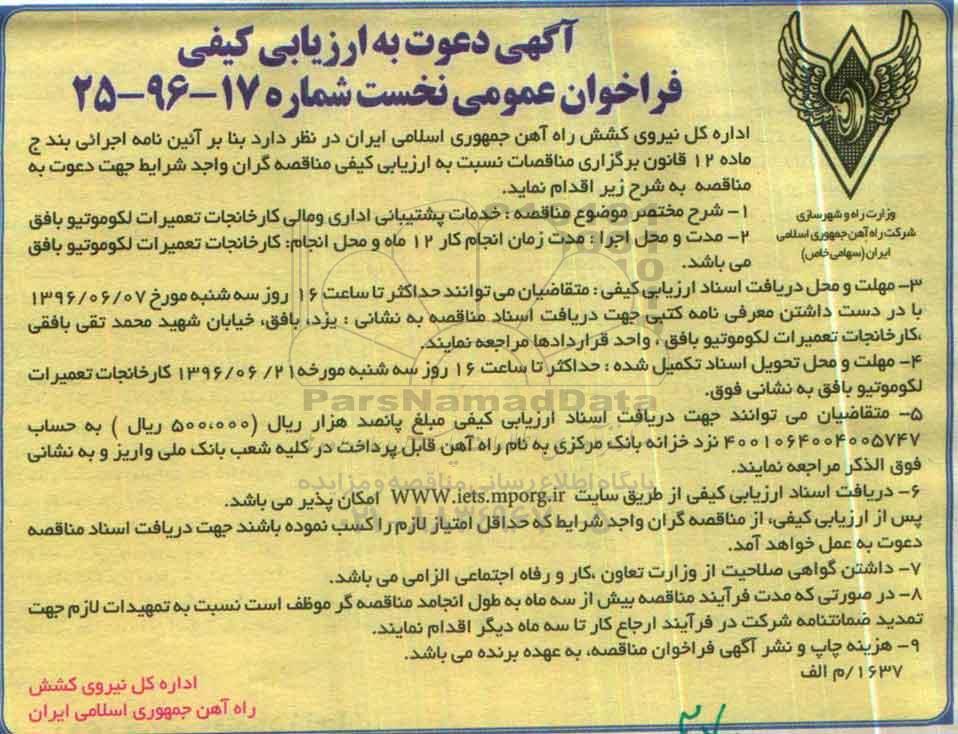 آگهی دعوت به ارزیابی کیفی
فراخوان عمومی نخست شماره ۱۷-۹۶-۲۵
وزارت راه و شهرسازی
شرکت راه آهن جمهوری اسلامی
ایران (سهامی خاص)
اداره کل نیروی کشش راه آهن جمهوری اسلامی ایران در نظر دارد بنا بر آئین نامه اجرائی بند ج
ماده ۱۲ قانون برگزاری مناقصات نسبت به ارزیابی کیفی مناقصه گران واجد شرایط جهت دعوت به
مناقصه به شرح زیر اقدام نماید.
۱- شرح مختصر موضوع مناقصه : خدمات پشتیبانی اداری ومالی کارخانجات تعمیرات لکوموتیو بافق
۲- مدت و محل اجرا : مدت زمان انجام کار ۱۲ ماه و محل انجام: کارخانجات تعمیرات لکوموتیو بافق
می باشد.
۳- مهلت و محل دریافت اسناد ارزیابی کیفی : متقاضیان می توانند حداکثر تا ساعت ۱۶ روز سه شنبه مورخ ۱۳۹۶/۰۶/۰۷
با در دست داشتن معرفی نامه کتبی جهت دریافت اسناد مناقصه به نشانی : یزد، بافق، خیابان شهید محمد تقی بافقی
،کارخانجات تعمیرات لکوموتیو بافق ، واحد قراردادها مراجعه نمایند.
۴- مهلت و محل تحویل اسناد تکمیل شده : حداکثر تا ساعت ۱۶ روز سه شنبه مورخه ۲۱/ ۰۶/ ۱۳۹۶ کارخانجات تعمیرات
لکوموتیو بافق به نشانی فوق.
۵- متقاضیان می توانند جهت دریافت اسناد ارزیابی کیفی مبلغ پانصد هزار ریال (۵۰۰،۰۰۰ ریال ) به حساب
۴۰۰۱۰۶۴۰۰۴۰۰۵۷۴۷ نزد خزانه بانک مرکزی به نام راه آهن قابل پرداخت در کلیه شعب بانک ملی واریز و به نشانی
فوق الذکر مراجعه نمایند.
۶- دریافت اسناد ارزیابی کیفی از طریق سایت WWW.iets.mporg.ir امکان پذیر می باشد.
پس از ارزیابی کیفی، از مناقصه گران واجد شرایط که حداقل امتیاز لازم را کسب نموده باشند جهت دریافت اسناد مناقصه
دعوت به عمل خواهد آمد.
۷- داشتن گواهی صلاحیت از وزارت تعاون ،کار و رفاه اجتماعی الزامی می باشد.
۸- در صورتی که مدت فرآیند مناقصه بیش از سه ماه به طول انجامد مناقصه گر موظف است نسبت به تمهیدات لازم جهت
تمدید ضمانتنامه شرکت در فرآیند ارجاع کار تا سه ماه دیگر اقدام نمایند.
۹- هزینه چاپ و نشر آگهی فراخوان مناقصه، به عهده برنده می باشد.
۱۶۳۷/م الف
اداره کل نیروی کشش
راه آهن جمهوری اسلامی ایران
ParsNamadData
پایگاه اطلاع رسانی مناقصه و مزایده